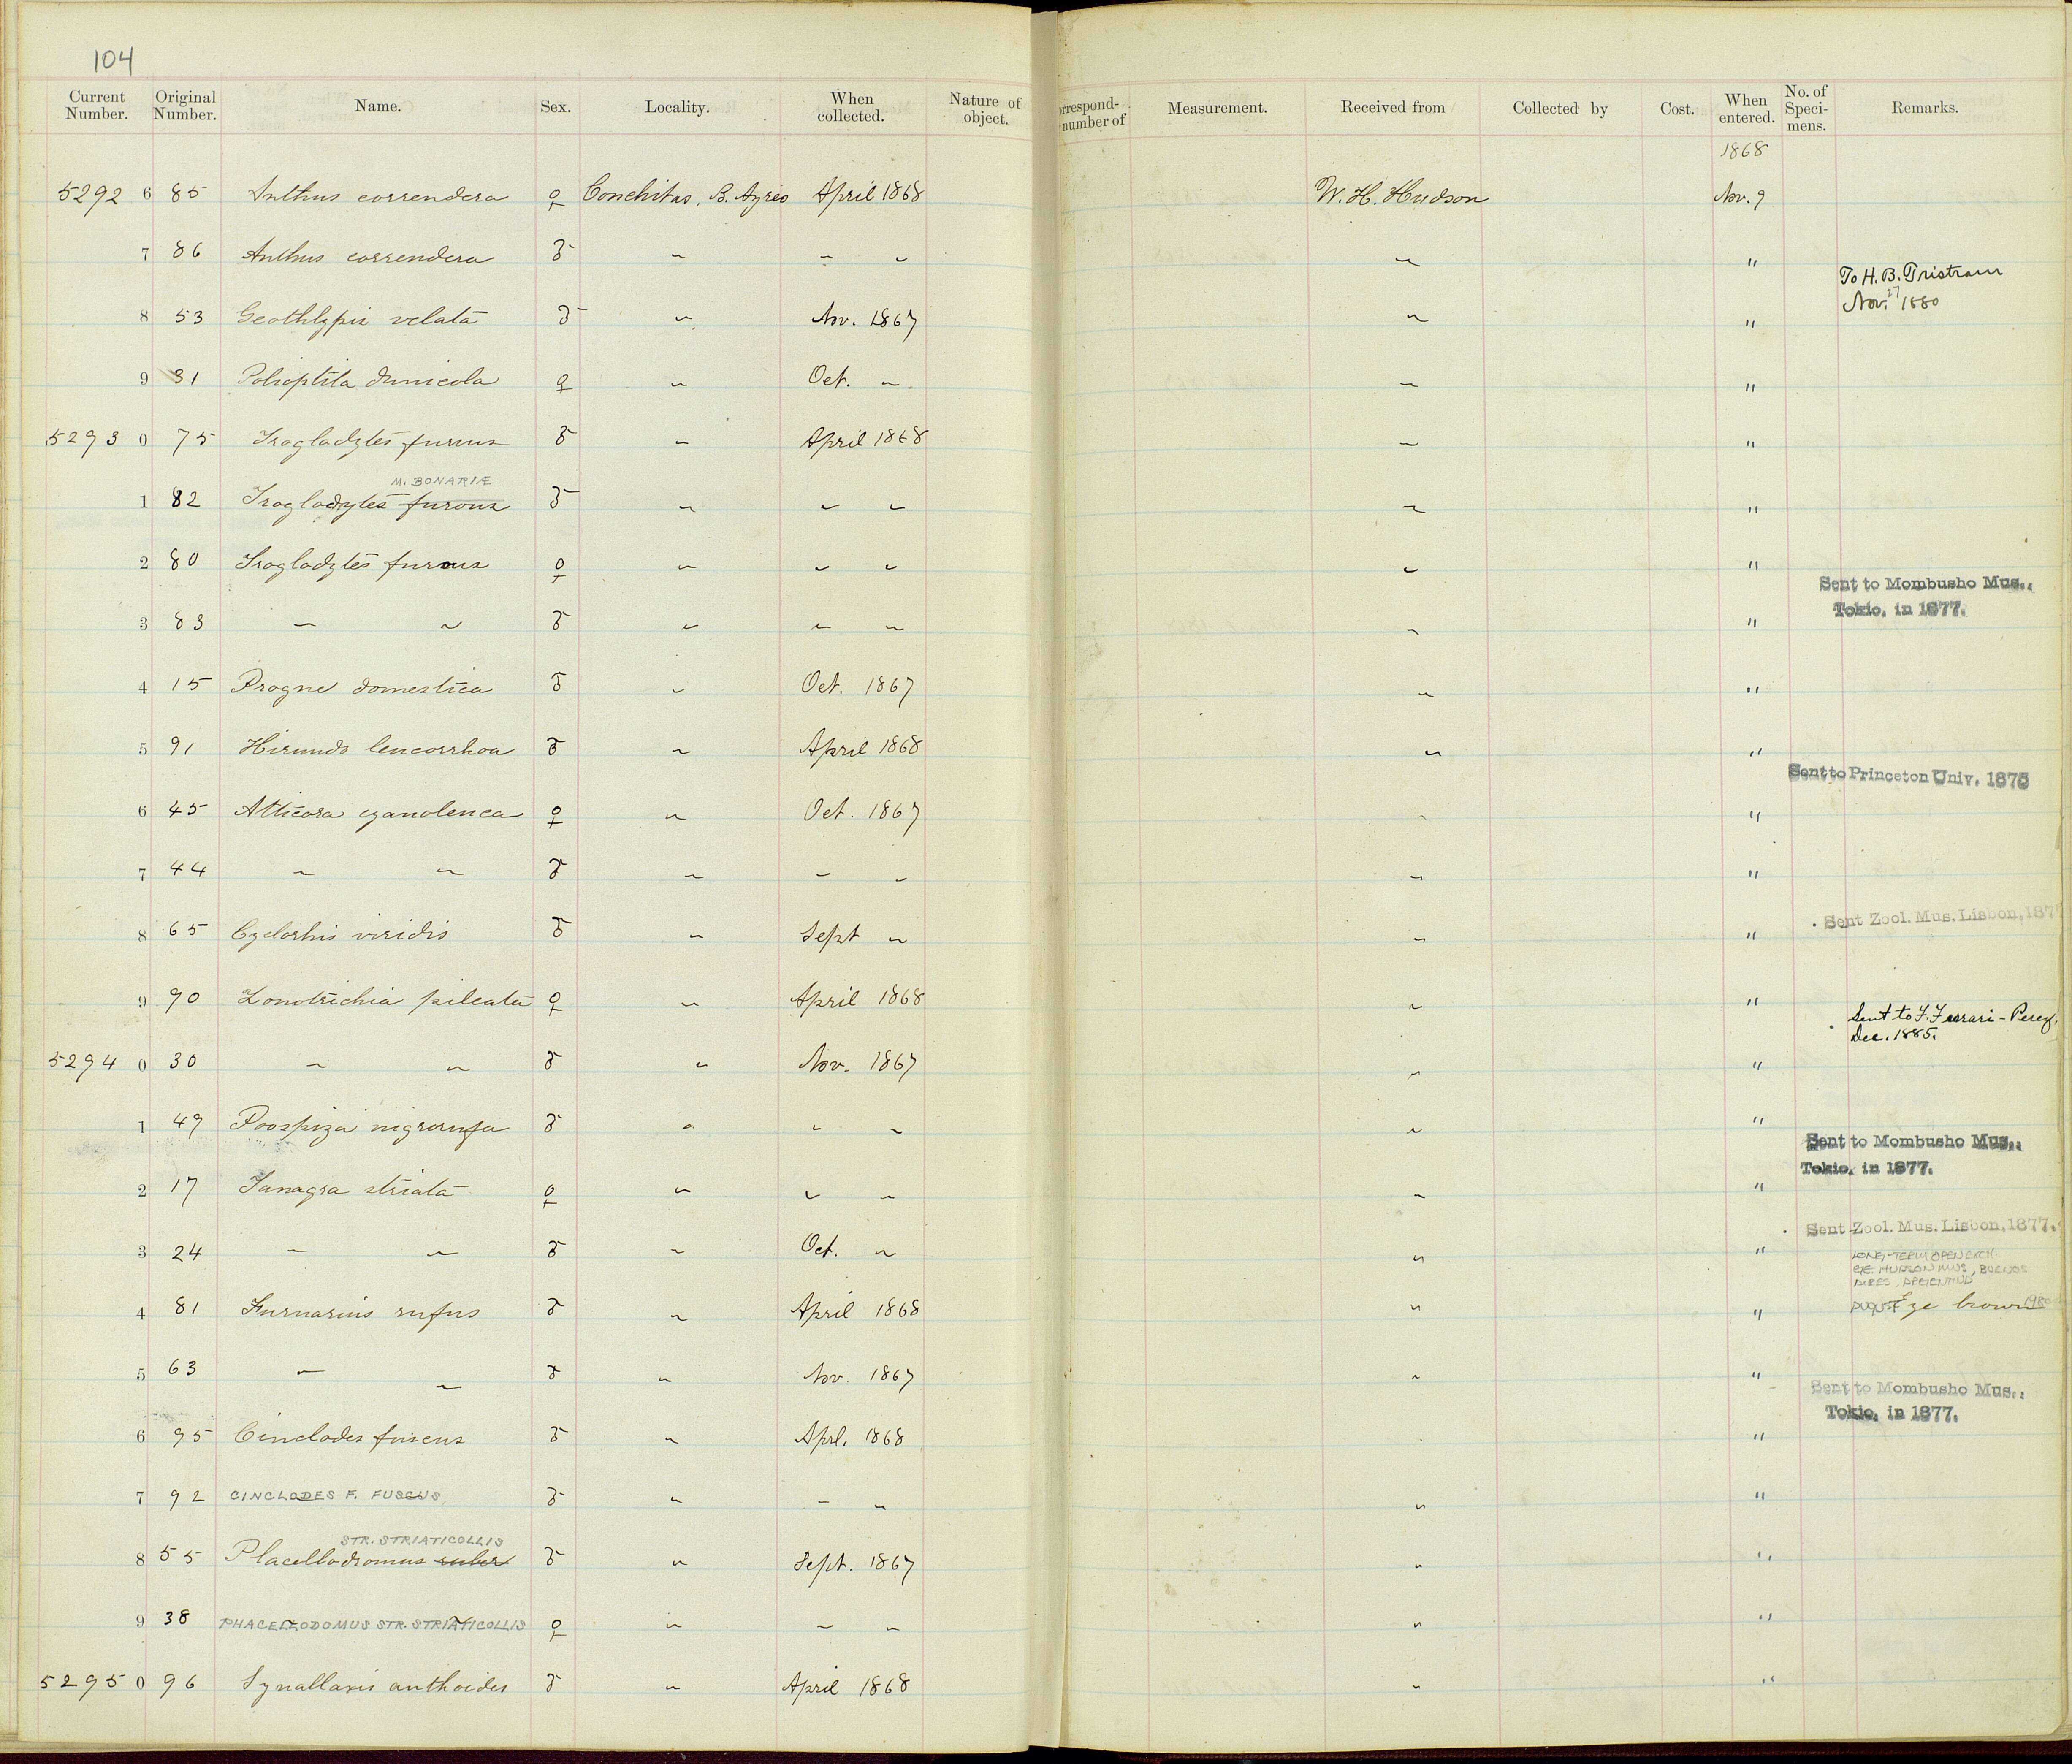 104
Current Number. Original Number. Name. Sex. Locality. When collected. Nature of object. orrespond- number of Measurement. Received from Collected by Cost. When entered. No. of Speci- mens. Remarks.
1868
5292 6 85 Anthus correndera ♀ Conchitas, B. Ayres April 1868 W. H. Hudson Nov. 9
7 86 Anthus correndera ♂ " " " " "
To H. B. Tristram
Nov. 27 1880
8 53 Geothlypis velata ♂ " Nov. 1867 " "
9 31 Polioptila dumicola ♀ " Oct. " " "
5293 0 75 Troglodytes furvus ♂ " April 1868 " "
M. BONARIÆ
1 82 Troglodytes furvus ♂ " " " " "
2 80 Troglodytes furvus ♀ " " " " "
Sent to Mombusho Mus.,
Tokio, in 1877.
3 83 " " ♂ " " " " "
4 15 Progne domestica ♂ " Oct. 1867 " "
5 91 Hirundo leucorrhoa ♂ " April 1868 " "
Sent to Princeton Univ. 1875
6 45 Atticora cyanoleuca ♀ " Oct. 1867 " "
7 44 " " ♂ " " " " "
Sent Zool. Mus. Lisbon, 187
8 65 Cyclorhis viridis ♂ " Sept " " "
9 90 Zonotrichia pileata ♀ " April 1868 " "
Sent to F. Ferrari-Perez,
Dec. 1885.
5294 0 30 " " ♂ " Nov. 1867 " "
1 49 Poospiza nigrorufa ♂ " " " " "
Sent to Mombusho Mus.,
Tokio, in 1877.
2 17 Tanagra striata ♀ " " " " "
Sent Zool. Mus. Lisbon, 1877.
3 24 " " ♂ " Oct. " " "
LONG-TERM OPEN EXCH.
HUDSON MUS, BUENOS
AIRES, ARGENTINA
4 81 Furnarius rufus ♂ " April 1868 " " Eye brown 1980
5 63 " " ♂ " Nov. 1867 " "
Sent to Mombusho Mus.,
Tokio, in 1877.
6 95 Cinclodes fuscus ♂ " Aprl. 1868 " "
7 92 CINCLODES F. FUSCUS ♂ " " " " "
STR. STRIATICOLLIS
8 55 Placellodromus ruber ♂ " Sept. 1867 " "
9 38 PHACELLODOMUS STR. STRIATICOLLIS ♀ " " " " "
5295 0 96 Synallaxis anthoides ♂ " April 1868 " "